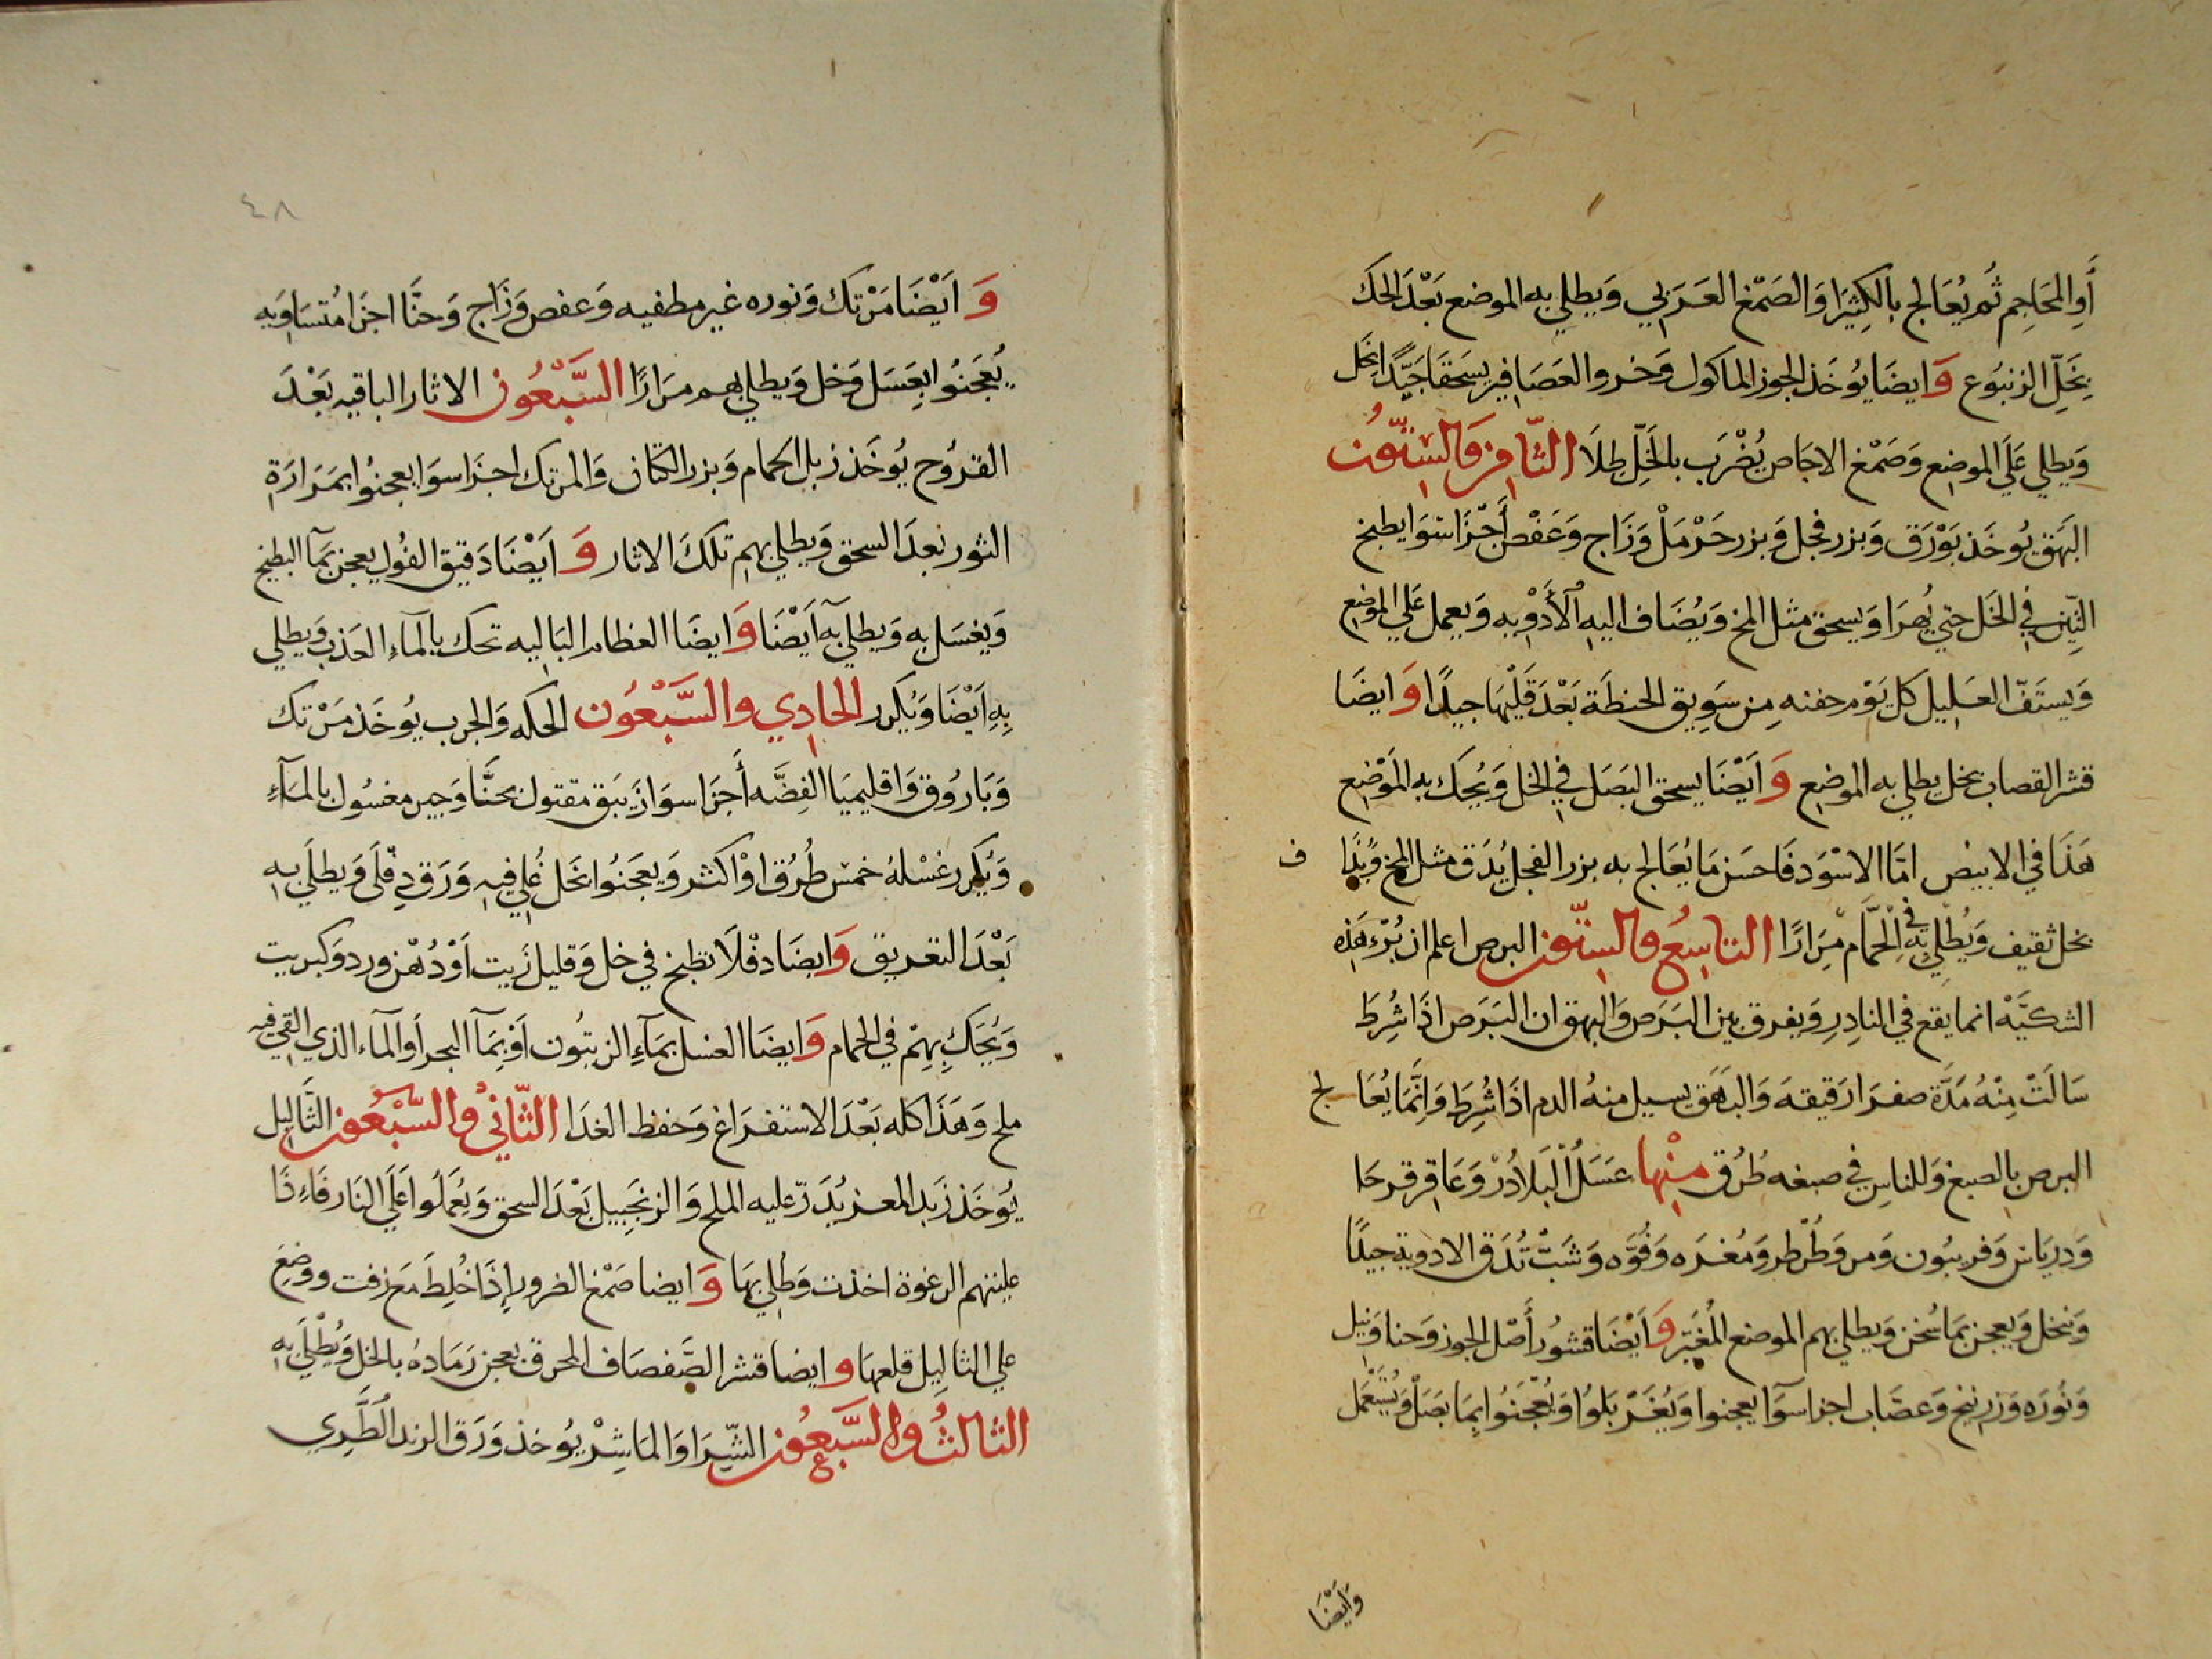 أَوِ المَحَاجِم ثُم يُعَالج بِالكِثِيَرا وَالصَمْغ العَرَبي وَيطلي به الموضع بَعْدَ الحك
بِخَلِّ الزنبُوع وَ ايضَا يُوخَذ الجوز الماكول وَخرو العصَافِير يسحَقا جَيِّدًا بخل
وَيطلي عَلَى الموضِع وَصَمْغ الاجاص يُضْرَب بالخَلِّ طِلَا الثَّامِن وَالسِتّون
البَهَق يُوخَذ بَوْرَق وَبزر فجل وَبزر حَرْمَلْ وَزَاج وَعَفْص أَجْزَا سَوَا يطبخ
التِّين في الخَل حتي يُهرَا وَيسحق مثل المخ وَيُضَاف اليهِ الأَدْوِيه وَيعمل عَلي الموضع
وَيستَفّ العَليِل كل يَوْم حفنه مِن سَوِيق الحنطَة بَعْدَ قَلْيْهَا جيدًا وَ ايضَا
قشر القصاب بخل يطلي به الموضِع وَ اَيْضَا يسحق البَصَل في الخل وَيُحَك به المَوْضِع
هَذَا في الابيض امَّا الاسْوَد فَاحسَن مَا يُعَالج به بزر الفجل يُدَق مثل المخ وَيُذَا ف
بخل ثقيف وَيُطْلِي بِهِ في الْحَمَّام مِرَارًا التاسِعُ والسِتّون البرص اعلم ان بُرْء هَذِه
الشكيَّة انما يقع في النادِرِ وَيفرق بين البَرَص وَالبهق ان البَرَص اذَا شُرِطَ
سَالَتْ مِنْهُ مَدَّة صفرَا رَقيقه وَالبَهَق يسيل منهُ الدم اذَا شُرِطَ وَانَّمَا يُعَا لج
البرص بِالصبغ وَللناسِ في صبغه طُرُق مِنْها عَسَلُ الْبَلَادُرْ وَعَاقِر قرحَا
وَدِريَاس وَفربيُون وَمن وَطُرْطر وَمُغرَه وَفُوَّه وَشَبّ تُدَق الادوية جيدًا
وَتنخل وَيعجن بمَا سُخن وَيطلي بهم الموضع المُغيَّر وَ اَيْضَا قشُور أَصْل الجوز وَحنا وَنيل
وَنُورَه وَزرنيخ وَعصَاب اجزا سَوَا يعجنوا وَيُغَرْبَلوُا وَيُعْجَنُوا بِمَا بَصَلْ وَيُسْتَعْمَل
وَايْضَا
٤٨
وَ ايَْضَا مَرْتَك وَنوره غير مطفيه وَعفص وَزَاج وَحنَّا اجزَا مُتسَاوَيه
يُعجَنُوا بعِسَل وَخل وَيطلي بهم مرَارًا السَّبْعُون الاثار الباقيه بَعْدَ
القرُوح يُوخَذ زبل الحمام وَبزر الكتان وَالمرتك اجزَا سوَا يعجنُوا بمَرَارَةِ
الثور بعدَ السحق وَيطلي بهِم تلكَ الاثار وَ اَيْضَا دَقيق الفُول يعجن بمَآ البطيخ
وَيغسَل به وَيطلي به اَيْضَا وَ ايضَا العظام البَاليه تحك بالمآءِ العَذب وَيطلي
بِهِ اَيْضَا وَيُكرر الحَادِي والسَّبْعُون الحكه وَالجرب يُوخَذ مَرْتك
وَبَارُوق وَاقليميَا الفِضَّه أَجزَا سوَا زَيبَق مقتول بحنَّا وَجير مغسُول بالمآءِ
وَيُكرر غسْلهُ خمس طُرُق اوْ اكثر وَيعجَنُوا بخَل غُلي فيهِ وَرَق دِفْلَى وَيطلَي بهِ
بَعْدَ التعريق وَ ايضَا دفْلَا تطبخ في خل وَقليل زَيت اَوْ دُهْن ورد وَكبريت
وَيُحَك بِهِمْ في الحمام وَ ايضَا الغسل بمَآءِ الزيتُون اَوْ بِمَآ البحر أو المآء الذي القِيَ فيه
ملح وَهَذَا كله بَعْدَ الاستفرَاغ وَحفظ الغذَا الثَّانيْ والسَّبْعُون الثَّاليل
يُوخَذ زَبد المعز يُذَرّ عليه الملح وَالزنجَبيل بَعْدَ السحق وَيُعمَلُوا عَلَي النَار فَاءِذَا
عليتهم الرغوة اخذت وَطُلِي بهَا وَ ايضا صَمْغ الضرو اِذَا خُلِطَ مَع زفت ووضِعَ
علي الثاليِل قلعهَا و ايضا قشر الصَّفصَاف المحرق يعجن رَمَادهُ بالخل وَيُطْلَي بهِ
الثالثُ والسَّبْعُون الشِّرَا وَالمَاشِرْ يُوخذ وَرَق الرند الَّطَرِي